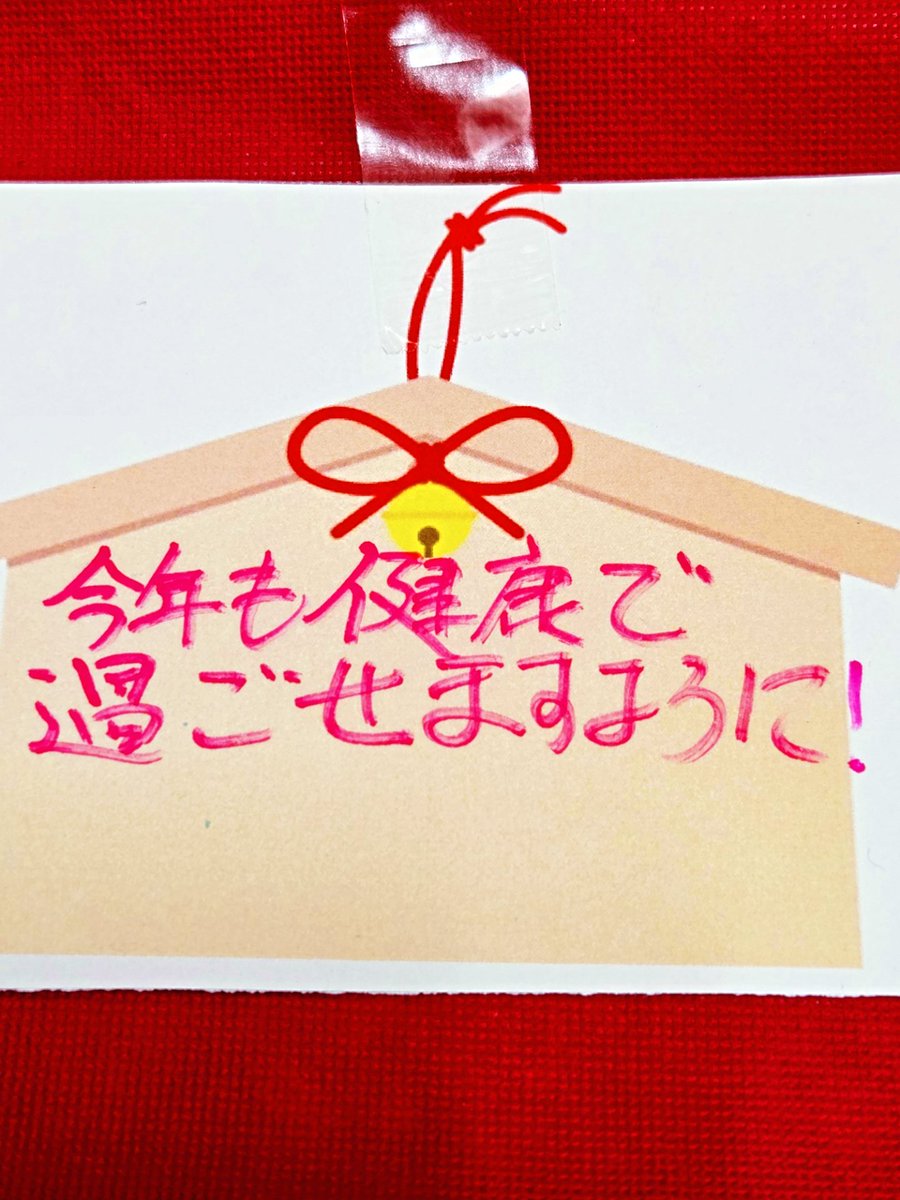 今年も健康で
過ごせますように!